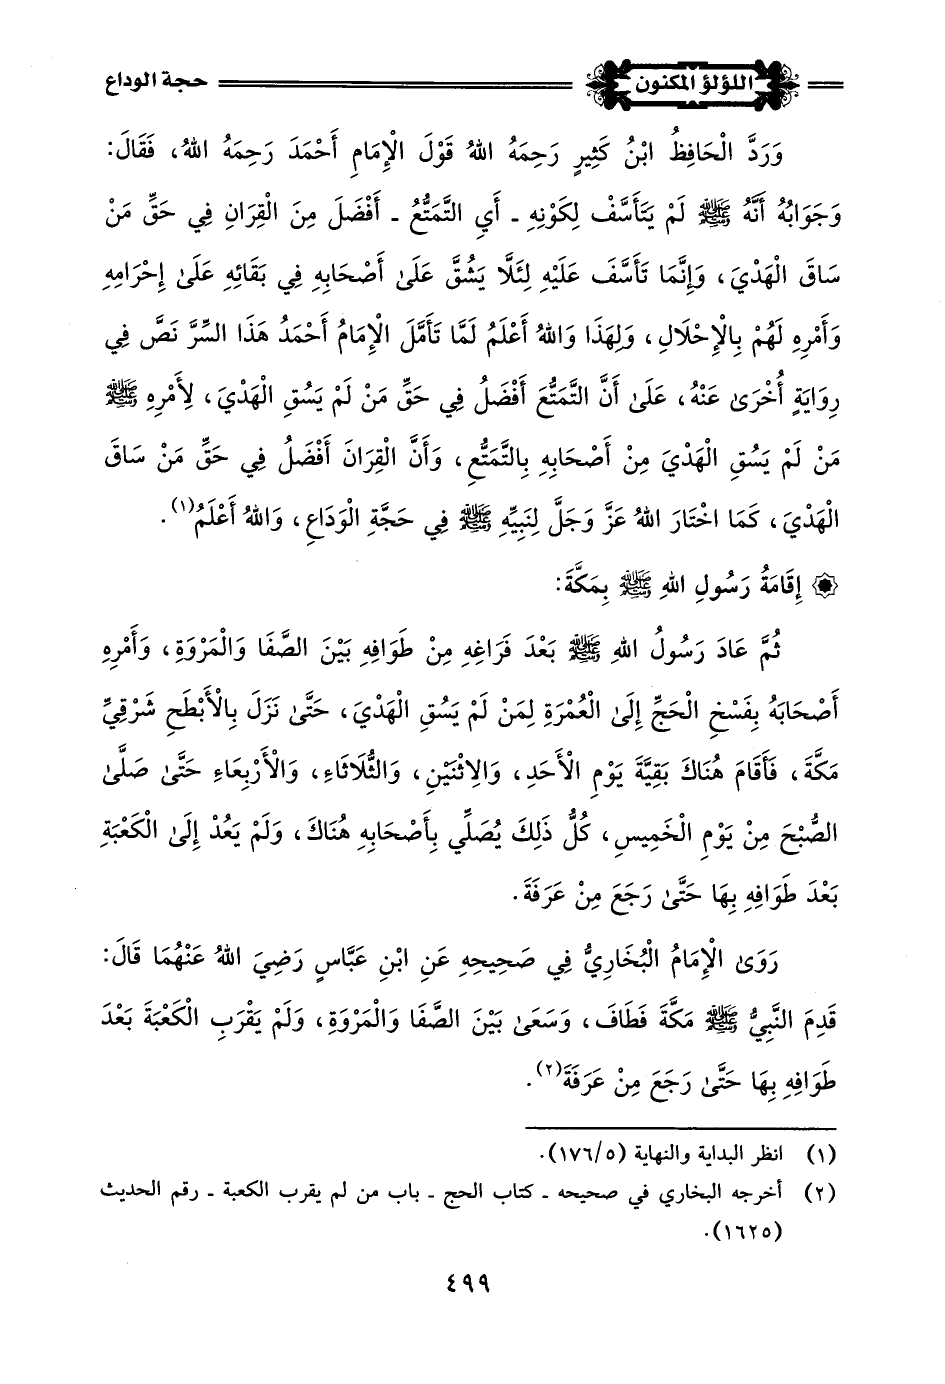 اللؤلؤ المكنون
حجة الوداع
وَرَدَّ الْحَافِظُ ابْنُ كَثِيرٍ رَحِمَهُ اللهُ قَوْلَ الْإِمَامِ أَحْمَدَ رَحِمَهُ اللهُ، فَقَالَ:
وَجَوَابُهُ أَنَّهُ ﷺ لَمْ يَتَأَسَّفْ لِكَوْنِهِ - أَيِ التَّمَتُّعُ - أَفْضَلَ مِنَ الْقِرَانِ فِي حَقِّ مَنْ
سَاقَ الْهَدْيَ، وَإِنَّمَا تَأَسَّفَ عَلَيْهِ لِئَلَّا يَشُقَّ عَلَىٰ أَصْحَابِهِ فِي بَقَائِهِ عَلَىٰ إِحْرَامِهِ
وَأَمْرِهِ لَهُمْ بِالْإِحْلَالِ، وَلِهَذَا وَاللهُ أَعْلَمُ لَمَّا تَأَمَّلَ الْإِمَامُ أَحْمَدُ هَذَا السِّرَّ نَصَّ فِي
رِوَايَةٍ أُخْرَىٰ عَنْهُ، عَلَىٰ أَنَّ التَّمَتُّعَ أَفْضَلُ فِي حَقِّ مَنْ لَمْ يَسُقِ الْهَدْيَ، لِأَمْرِهِ ﷺ
مَنْ لَمْ يَسُقِ الْهَدْيَ مِنْ أَصْحَابِهِ بِالتَّمَتُّعِ، وَأَنَّ الْقِرَانَ أَفْضَلُ فِي حَقِّ مَنْ سَاقَ
الْهَدْيَ، كَمَا اخْتَارَ اللهُ عَزَّ وَجَلَّ لِنَبِيِّهِ ﷺ فِي حَجَّةِ الْوَدَاعِ، وَاللهُ أَعْلَمُ(١).
۞ إِقَامَةُ رَسُولِ اللهِ ﷺ بِمَكَّةَ:
ثُمَّ عَادَ رَسُولُ اللهِ ﷺ بَعْدَ فَرَاغِهِ مِنْ طَوَافِهِ بَيْنَ الصَّفَا وَالْمَرْوَةِ، وَأَمْرِهِ
أَصْحَابَهُ بِفَسْخِ الْحَجِّ إِلَىٰ الْعُمْرَةِ لِمَنْ لَمْ يَسُقِ الْهَدْيَ، حَتَّىٰ نَزَلَ بِالْأَبْطَحِ شَرْقِيِّ
مَكَّةَ، فَأَقَامَ هُنَاكَ بَقِيَّةَ يَوْمِ الْأَحَدِ، وَالِاثْنَيْنِ، وَالثُّلَاثَاءِ، وَالْأَرْبِعَاءِ حَتَّىٰ صَلَّىٰ
الصُّبْحَ مِنْ يَوْمِ الْخَمِيسِ، كُلُّ ذَلِكَ يُصَلِّي بِأَصْحَابِهِ هُنَاكَ، وَلَمْ يَعُدْ إِلَىٰ الْكَعْبَةِ
بَعْدَ طَوَافِهِ بِهَا حَتَّىٰ رَجَعَ مِنْ عَرَفَةَ.
رَوَىٰ الْإِمَامُ الْبُخَارِيُّ فِي صَحِيحِهِ عَنِ ابْنِ عَبَّاسٍ رَضِيَ اللهُ عَنْهُمَا قَالَ:
قَدِمَ النَّبِيُّ ﷺ مَكَّةَ فَطَافَ، وَسَعَىٰ بَيْنَ الصَّفَا وَالْمَرْوَةِ، وَلَمْ يَقْرَبِ الْكَعْبَةَ بَعْدَ
طَوَافِهِ بِهَا حَتَّىٰ رَجَعَ مِنْ عَرَفَةَ(٢).
(١) انظر البداية والنهاية (١٧٦/٥).
(٢) أخرجه البخاري في صحيحه - كتاب الحج - باب من لم يقرب الكعبة - رقم الحديث
(١٦٢٥).
٤٩٩